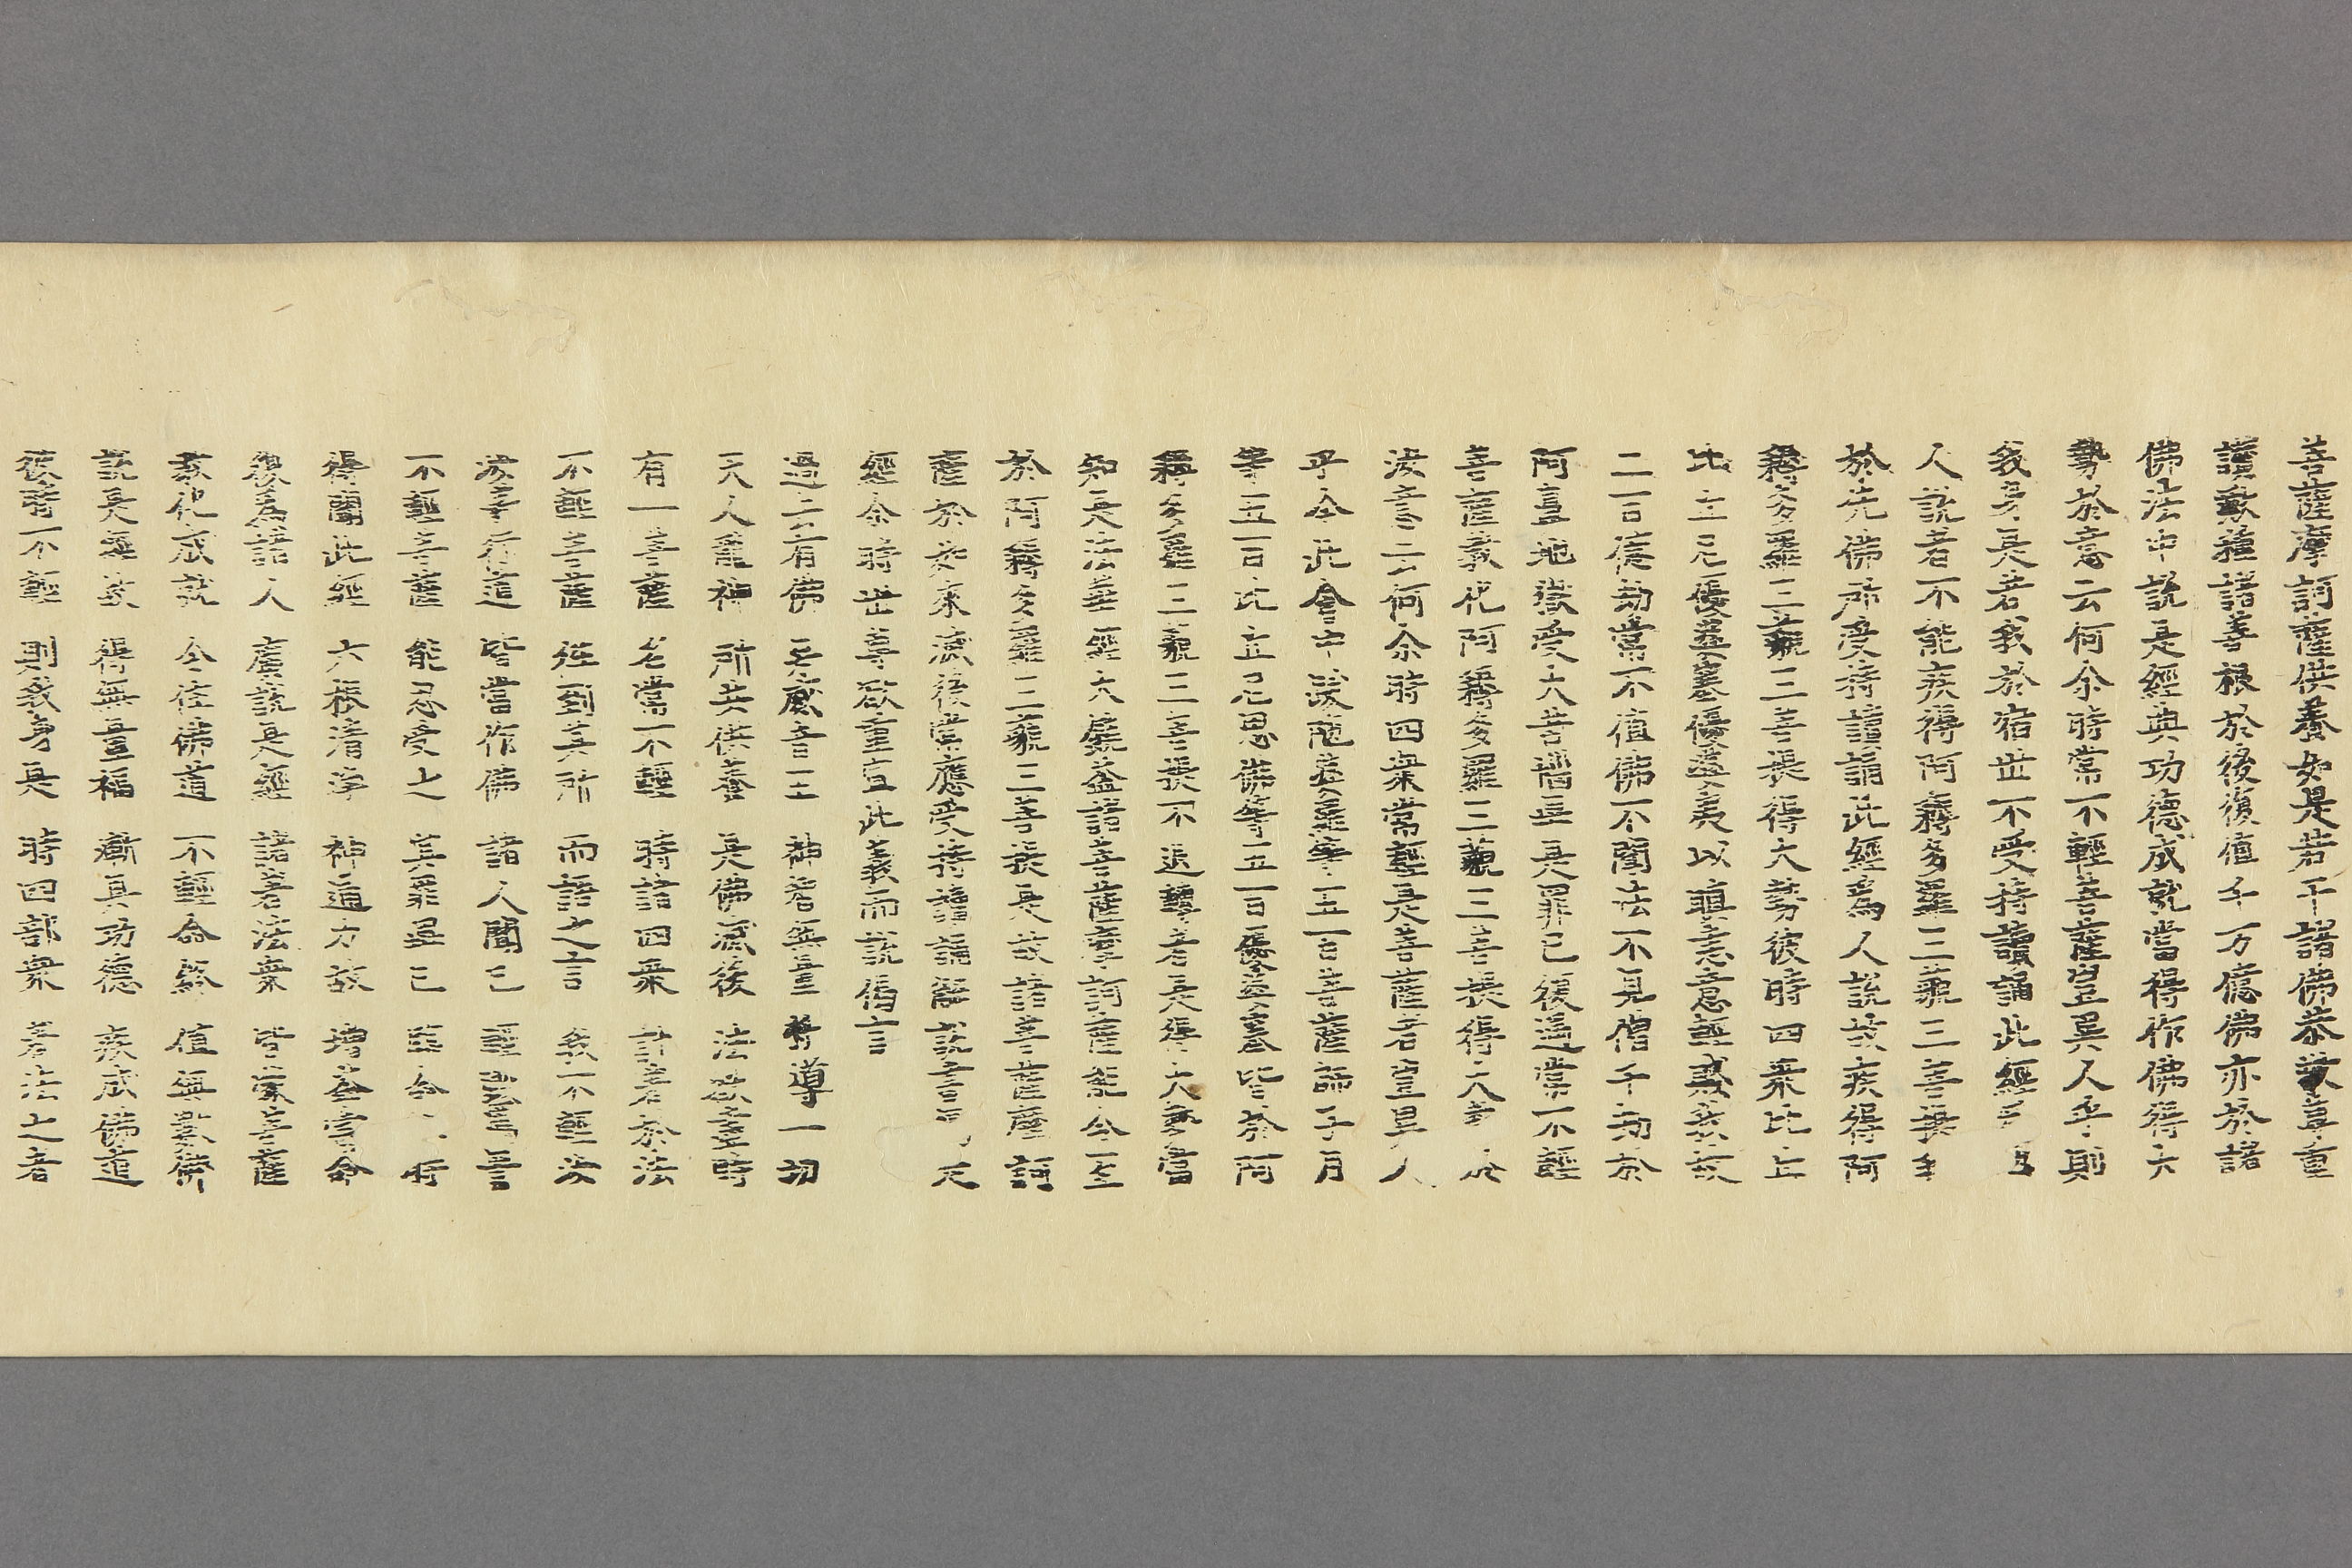 菩薩摩訶薩供養如是若干諸佛恭敬尊重
讚歎種諸善根於後復值千万億佛亦於諸
佛法中說是經典功德成就當得作佛得大
勢於意云何尒時常不輕菩薩豈異人乎則
我身是若我於宿世不受持讀誦此經
人說者不能疾得阿耨多羅三藐三菩提
於先佛所受持讀誦此經為人說故疾得阿
耨多羅三藐三菩提得大勢彼時四衆比丘
比丘尼優婆塞優婆夷以瞋恚意輕賤我故
二百億劫常不值佛不聞法不見僧千劫於
阿鼻地獄受大苦惱畢是罪已復遇常不輕
菩薩教化阿耨多羅三藐三菩提得大於
汝意云何尒時四衆常輕是菩薩者豈異人
乎今此會中跋陁婆羅等五百菩薩師子月
等五百比丘尼思佛等五百優婆塞皆於阿
耨多羅三藐三菩提不退轉者是得大勢當
知是法華經大饒益諸菩薩摩訶薩能令至
於阿耨多羅三藐三菩提是故諸菩薩摩訶
薩於如來滅後常應受持讀誦解說書寫是
經尒時世尊欲重宣此義而說偈言
過去有佛　号威音王　神智無量　將導一切
天人龍神　所共供養　是佛滅後　法欲盡時
有一菩薩　名常不輕　時諸四衆　計著於法
不輕菩薩　往到其所　而語之言　我不輕汝
汝等行道　皆當作佛　諸人聞已　輕毀罵詈
不輕菩薩　能忍受之　其罪畢已　臨命時
得聞此經　六根清淨　神通力故　增益壽命
復為諸人　廣說是經　諸著法衆　皆蒙菩薩
教化成就　令住佛道　不輕命終　值無數佛
說是經故　得無量福　漸具功德　疾成佛道
彼時不輕　則我身是　時四部衆　著法之者